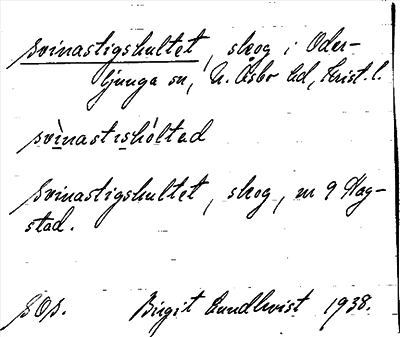 Svinastigshultet, skog i Oder-
ljunga sn, N. Åsbo hd, Krist. l.
svìnastıshòltəd
Svinastigshultet, skog, nr 9 Hag-
stad.
SOS. Birgit Lundkvist 1938.